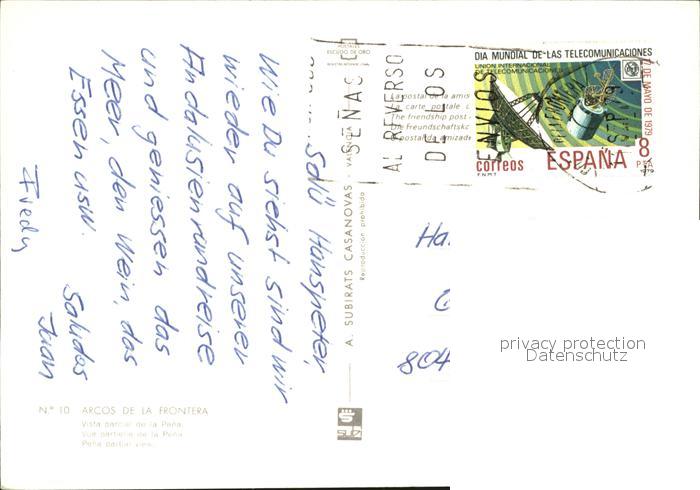 Salü Hanspeter,
Wie Du siehst sind wir
wieder auf unserer
Andalusienrundreise
und geniessen das
Meer, den Wein, das
Essen usw.
Saludos
Juan
Fredy
N.º 10 ARCOS DE LA FRONTERA
Vista parcial de la Peña.
Vue partielle de la Peña.
Peña partial view.
A. SUBIRATS CASANOVAS - VALENCIA
Reproducción prohibida
POSTALES
ESCUDO DE ORO
La postal de la amis
La carte postale
The friendship post
Die Freundschaftsk
SEÑAS
AL REVERSO
DE LOS
ENVIOS
DIA MUNDIAL DE LAS TELECOMUNICACIONES
UNION INTERNACIONAL
DE TELECOMUNICACIONES
17 DE MAYO DE 1979
correos
ESPAÑA
8
PTA
F.N.M.T.
Ha
804
SUBI
privacy protection
Datenschutz